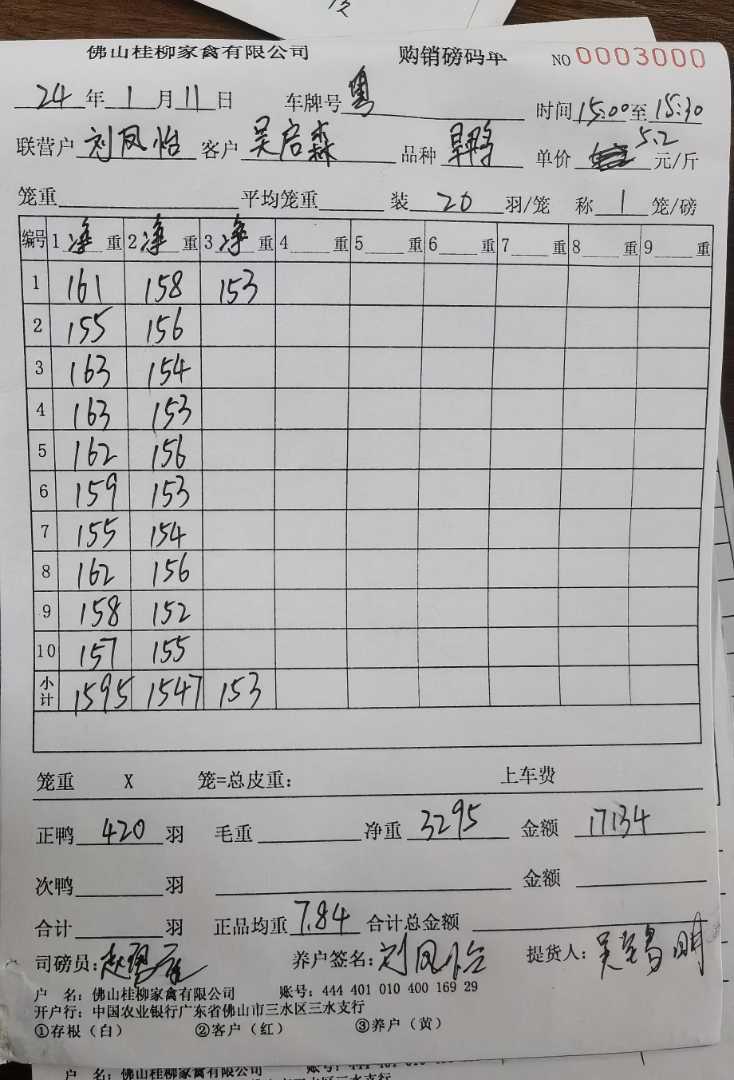 佛山桂柳家禽有限公司 购销磅码单 NO 0003000
24年1月11日 车牌号 粤 时间15:00至15:30
联营户 刘凤怡 客户 吴启森 品种 旱鸭 单价 5.2 元/斤
笼重 平均笼重 装 20 羽/笼 称 1 笼/磅
编号 1净重 2净重 3净重 4 重 5 重 6 重 7 重 8 重 9 重
1 161 158 153
2 155 156
3 163 154
4 163 153
5 162 156
6 159 153
7 155 154
8 162 156
9 158 152
10 157 155
小计 1595 1547 153
笼重 X 笼=总皮重: 上车费
正鸭 420 羽 毛重 净重 3295 金额 17134
次鸭 羽 金额
合计 羽 正品均重 7.84 合计总金额
司磅员: 养户签名: 刘凤怡 提货人: 吴
户 名: 佛山桂柳家禽有限公司 账号: 444 401 010 400 169 29
开户行: 中国农业银行广东省佛山市三水区三水支行
①存根(白) ②客户(红) ③养户(黄)
户 名: 佛山桂柳家禽有限公司 账号: 444 401 010 400